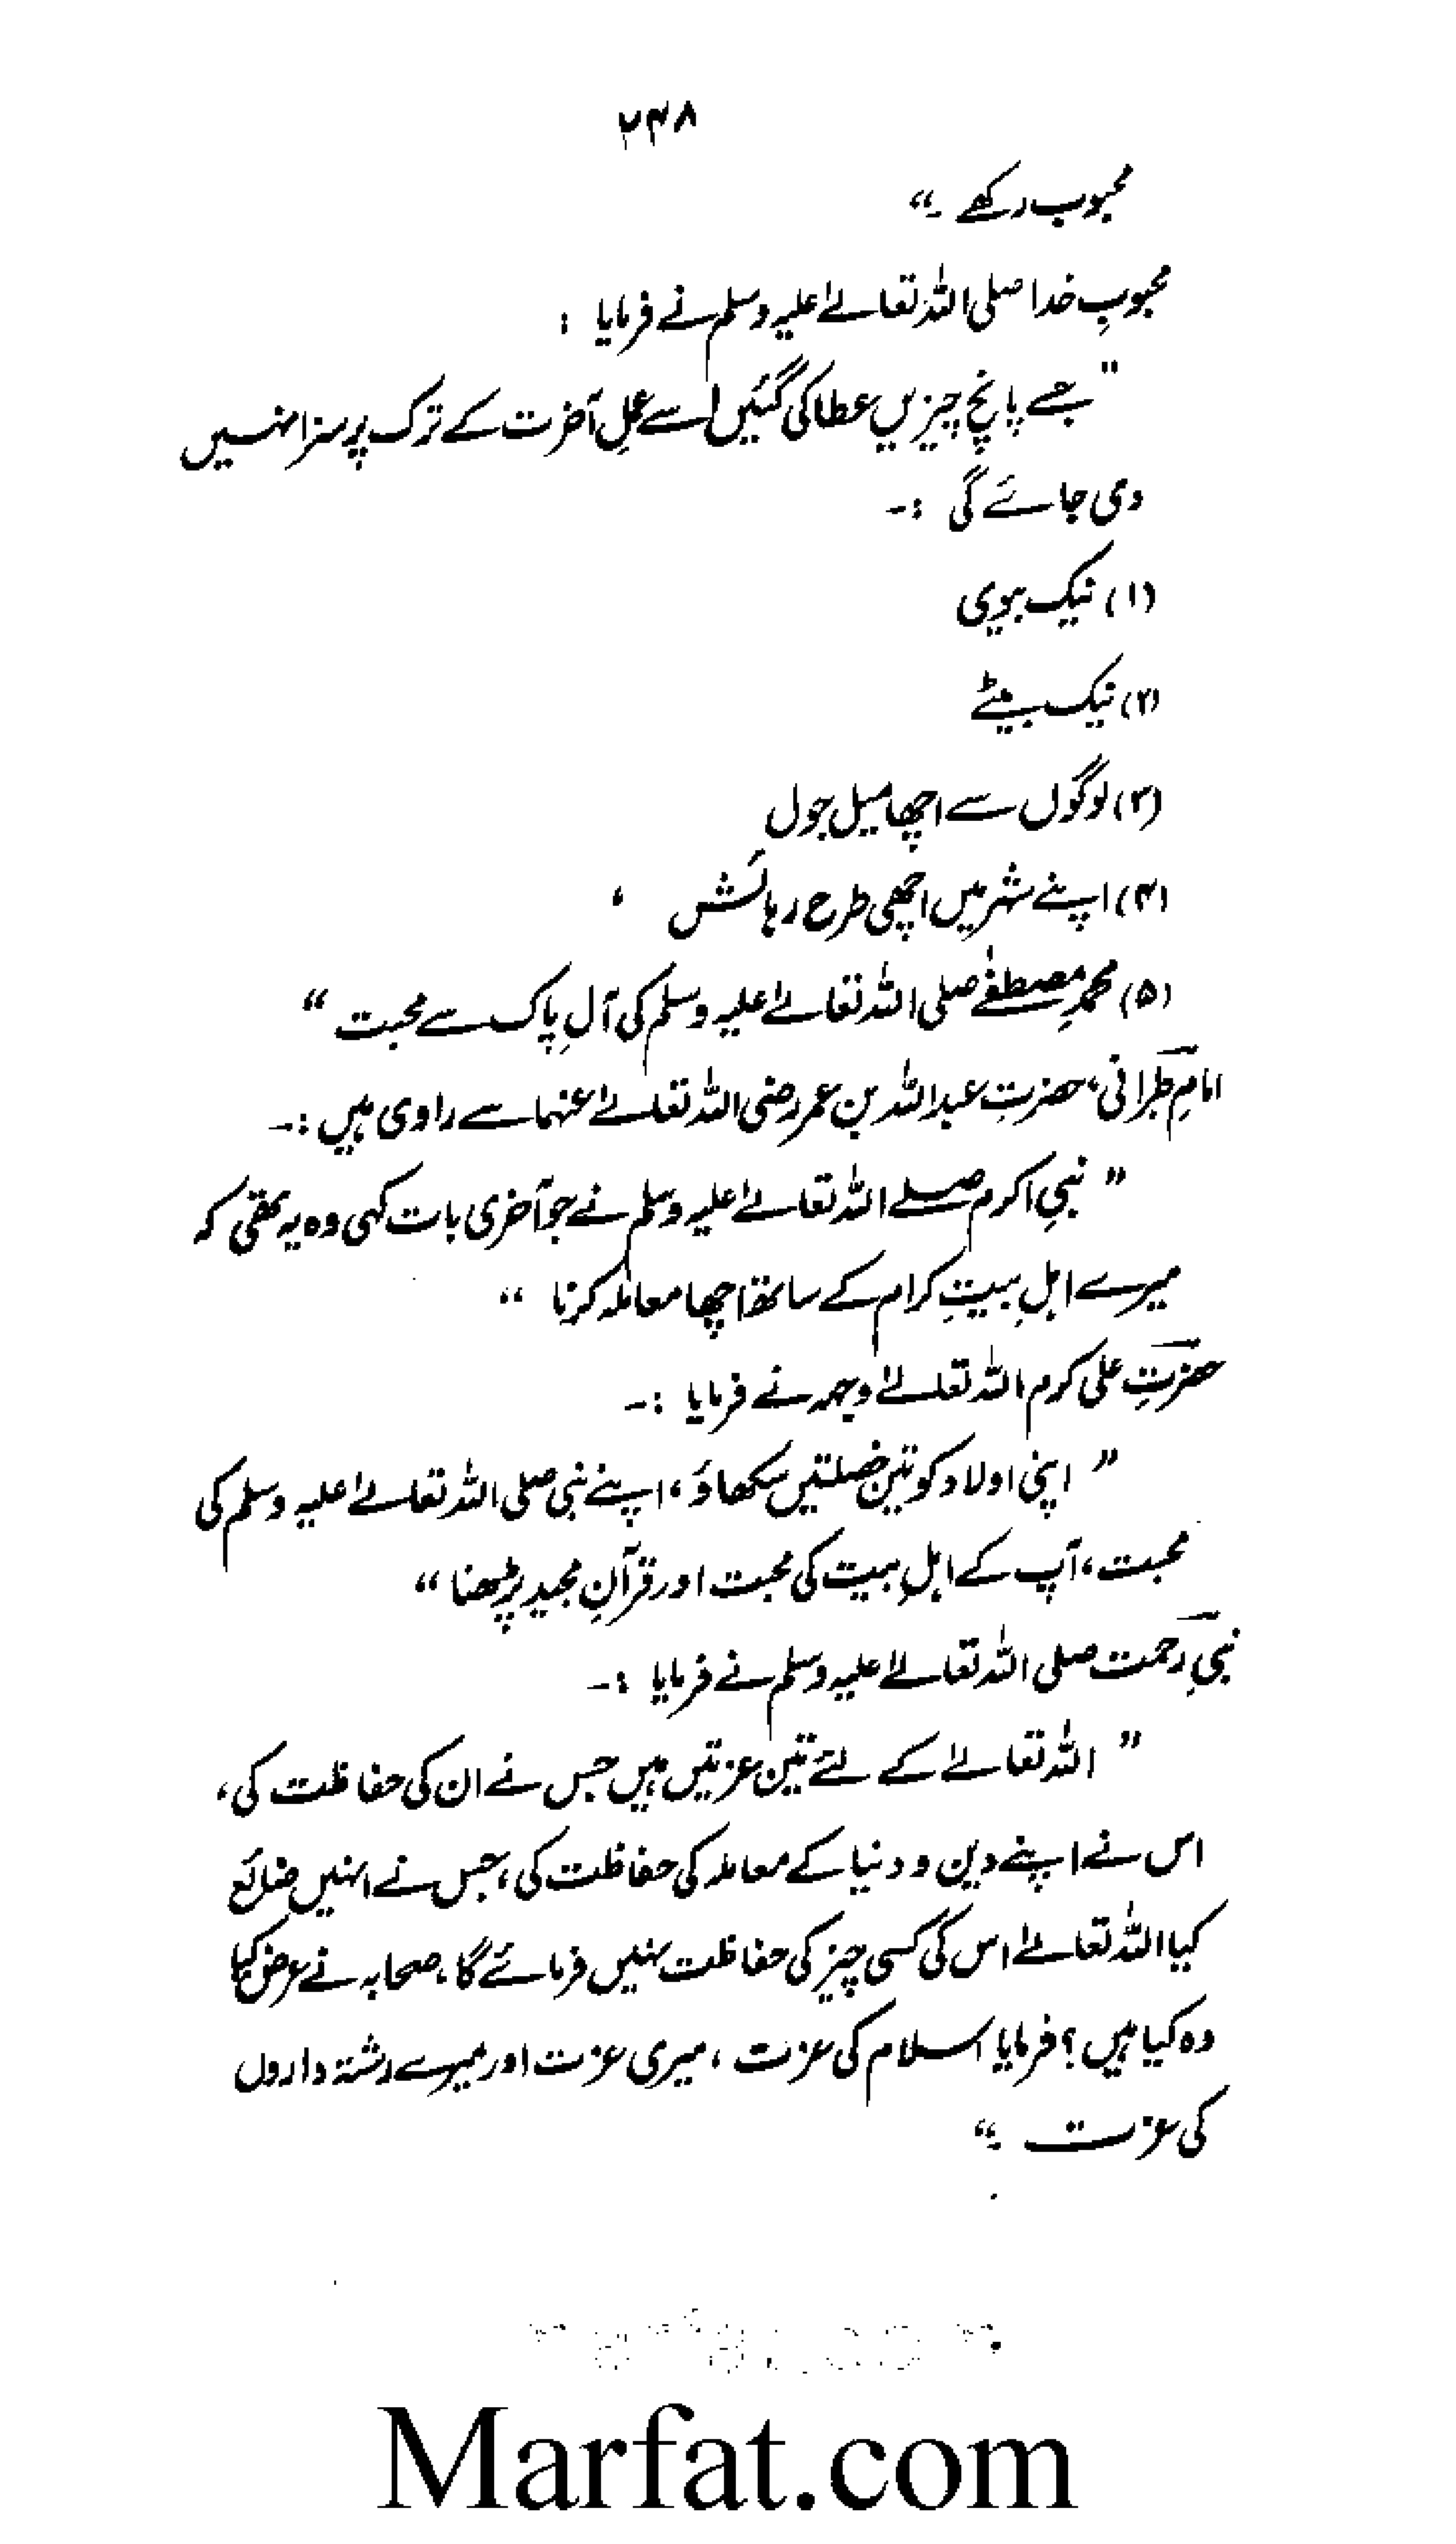 ۲۴۸
محبوب رکھے ۔“
محبوبِ خدا صلی اللہ تعالےٰ علیہ وسلم نے فرمایا :
” جسے پانچ چیزیں عطا کی گئیں اسے عملِ آخرت کے ترک پر سزا نہیں
دی جائے گی :۔
(۱) نیک بیوی
(۲) نیک بیٹے
(۳) لوگوں سے اچھا میل جول
(۴) اپنے شہر میں اچھی طرح رہائش ،
(۵) محمدِ مصطفےٰ صلی اللہ تعالےٰ علیہ وسلم کی آلِ پاک سے محبت “
امامِ طبرانی، حضرتِ عبداللہ بن عمر رضی اللہ تعالےٰ عنہما سے راوی ہیں :۔
” نبیِ اکرم صلے اللہ تعالےٰ علیہ وسلم نے جو آخری بات کہی وہ یہ تھی کہ
میرے اہلِ بیتِ کرام کے ساتھ اچھا معاملہ کرنا “
حضرتِ علی کرم اللہ تعالےٰ وجہہ نے فرمایا :۔
” اپنی اولاد کو تین خصلتیں سکھاؤ، اپنے نبی صلی اللہ تعالےٰ علیہ وسلم کی
محبت، آپ کے اہلِ بیت کی محبت اور قرآنِ مجید پڑھنا “
نبیِ رحمت صلی اللہ تعالےٰ علیہ وسلم نے فرمایا :۔
” اللہ تعالےٰ کے لئے تین عزتیں ہیں جس نے ان کی حفاظت کی،
اس نے اپنے دین و دنیا کے معاملہ کی حفاظت کی، جس نے انہیں ضائع
کیا اللہ تعالےٰ اس کی کسی چیز کی حفاظت نہیں فرمائے گا، صحابہ نے عرض کیا
وہ کیا ہیں؟ فرمایا اسلام کی عزت ، میری عزت اور میرے رشتہ داروں
کی عزت ۔“
Marfat.com